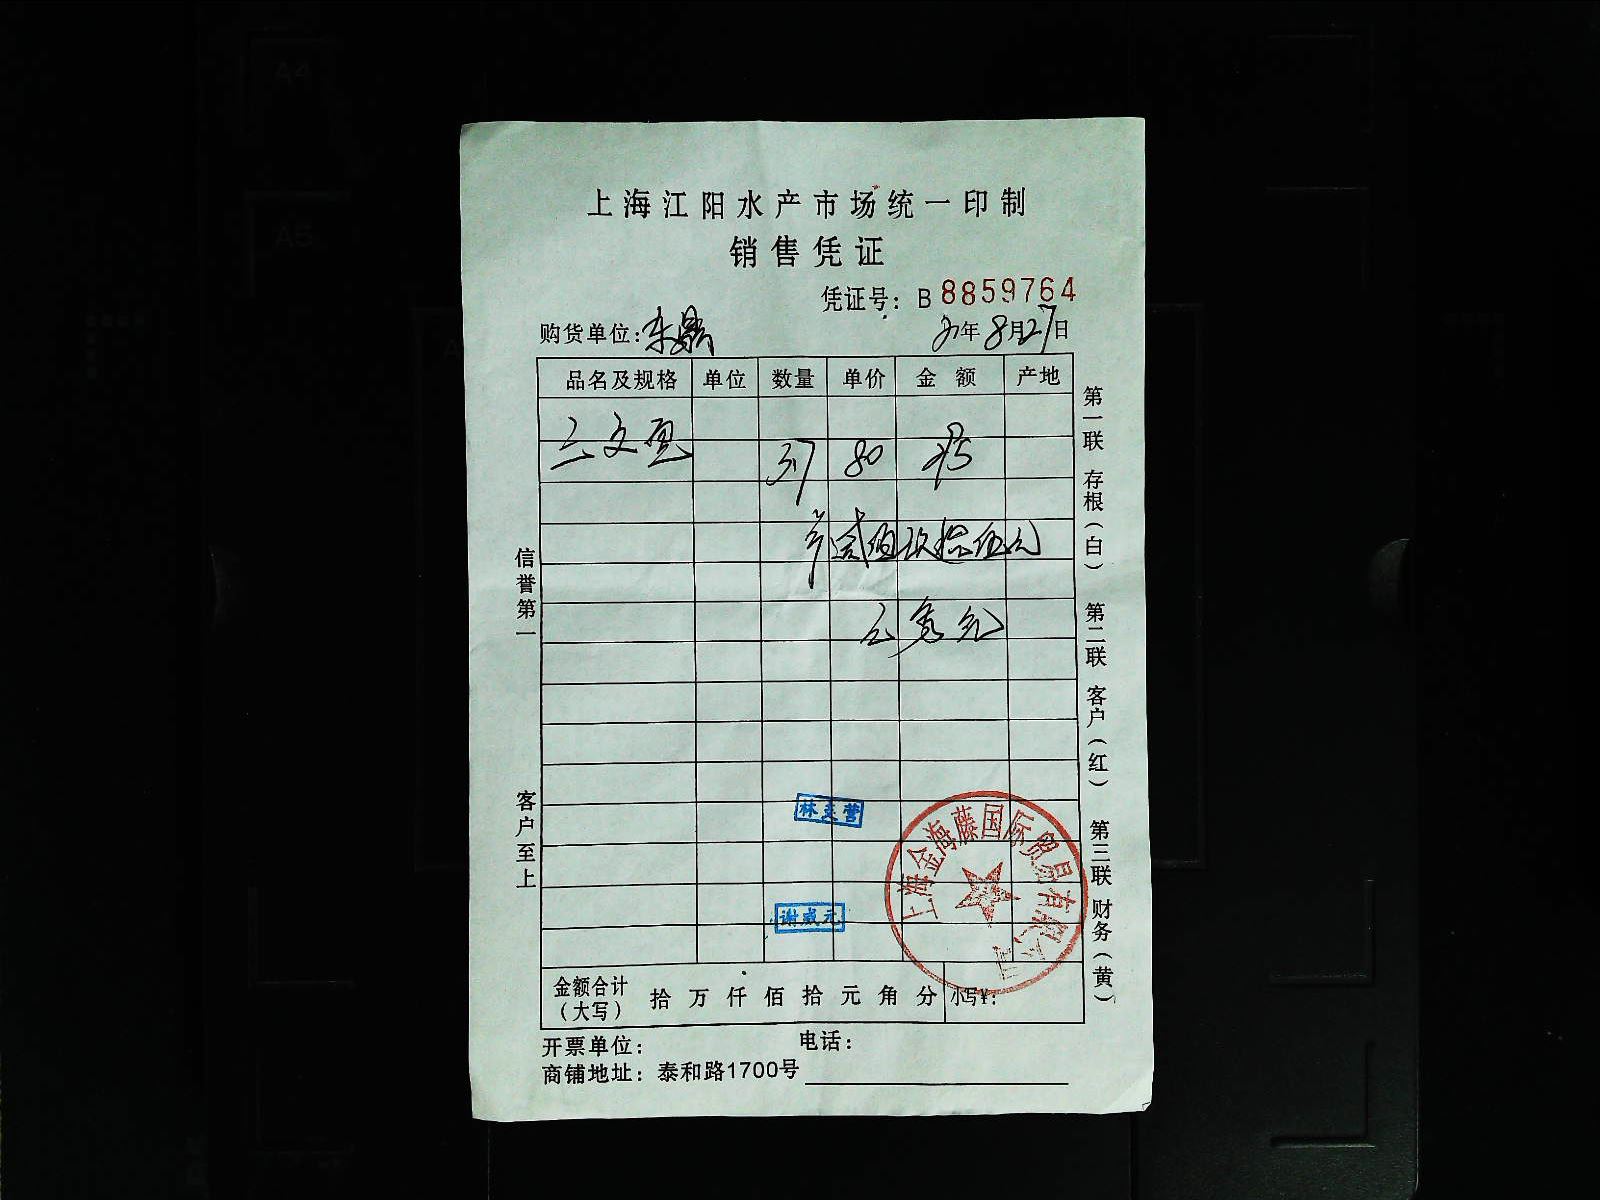 上海江阳水产市场统一印制
销售凭证
凭证号：B 8859764
购货单位：东
年8月27日
品名及规格 单位 数量 单价 金额 产地
三文鱼 37 80
贰佰玖拾伍元
林支营
谢咸元
上海金海藤国际贸易有限公司
金额合计（大写） 拾 万 仟 佰 拾 元 角 分 小写¥：
开票单位： 电话：
商铺地址：泰和路1700号
信誉第一 客户至上
第一联 存根（白） 第二联 客户（红） 第三联 财务（黄）
A4
A5